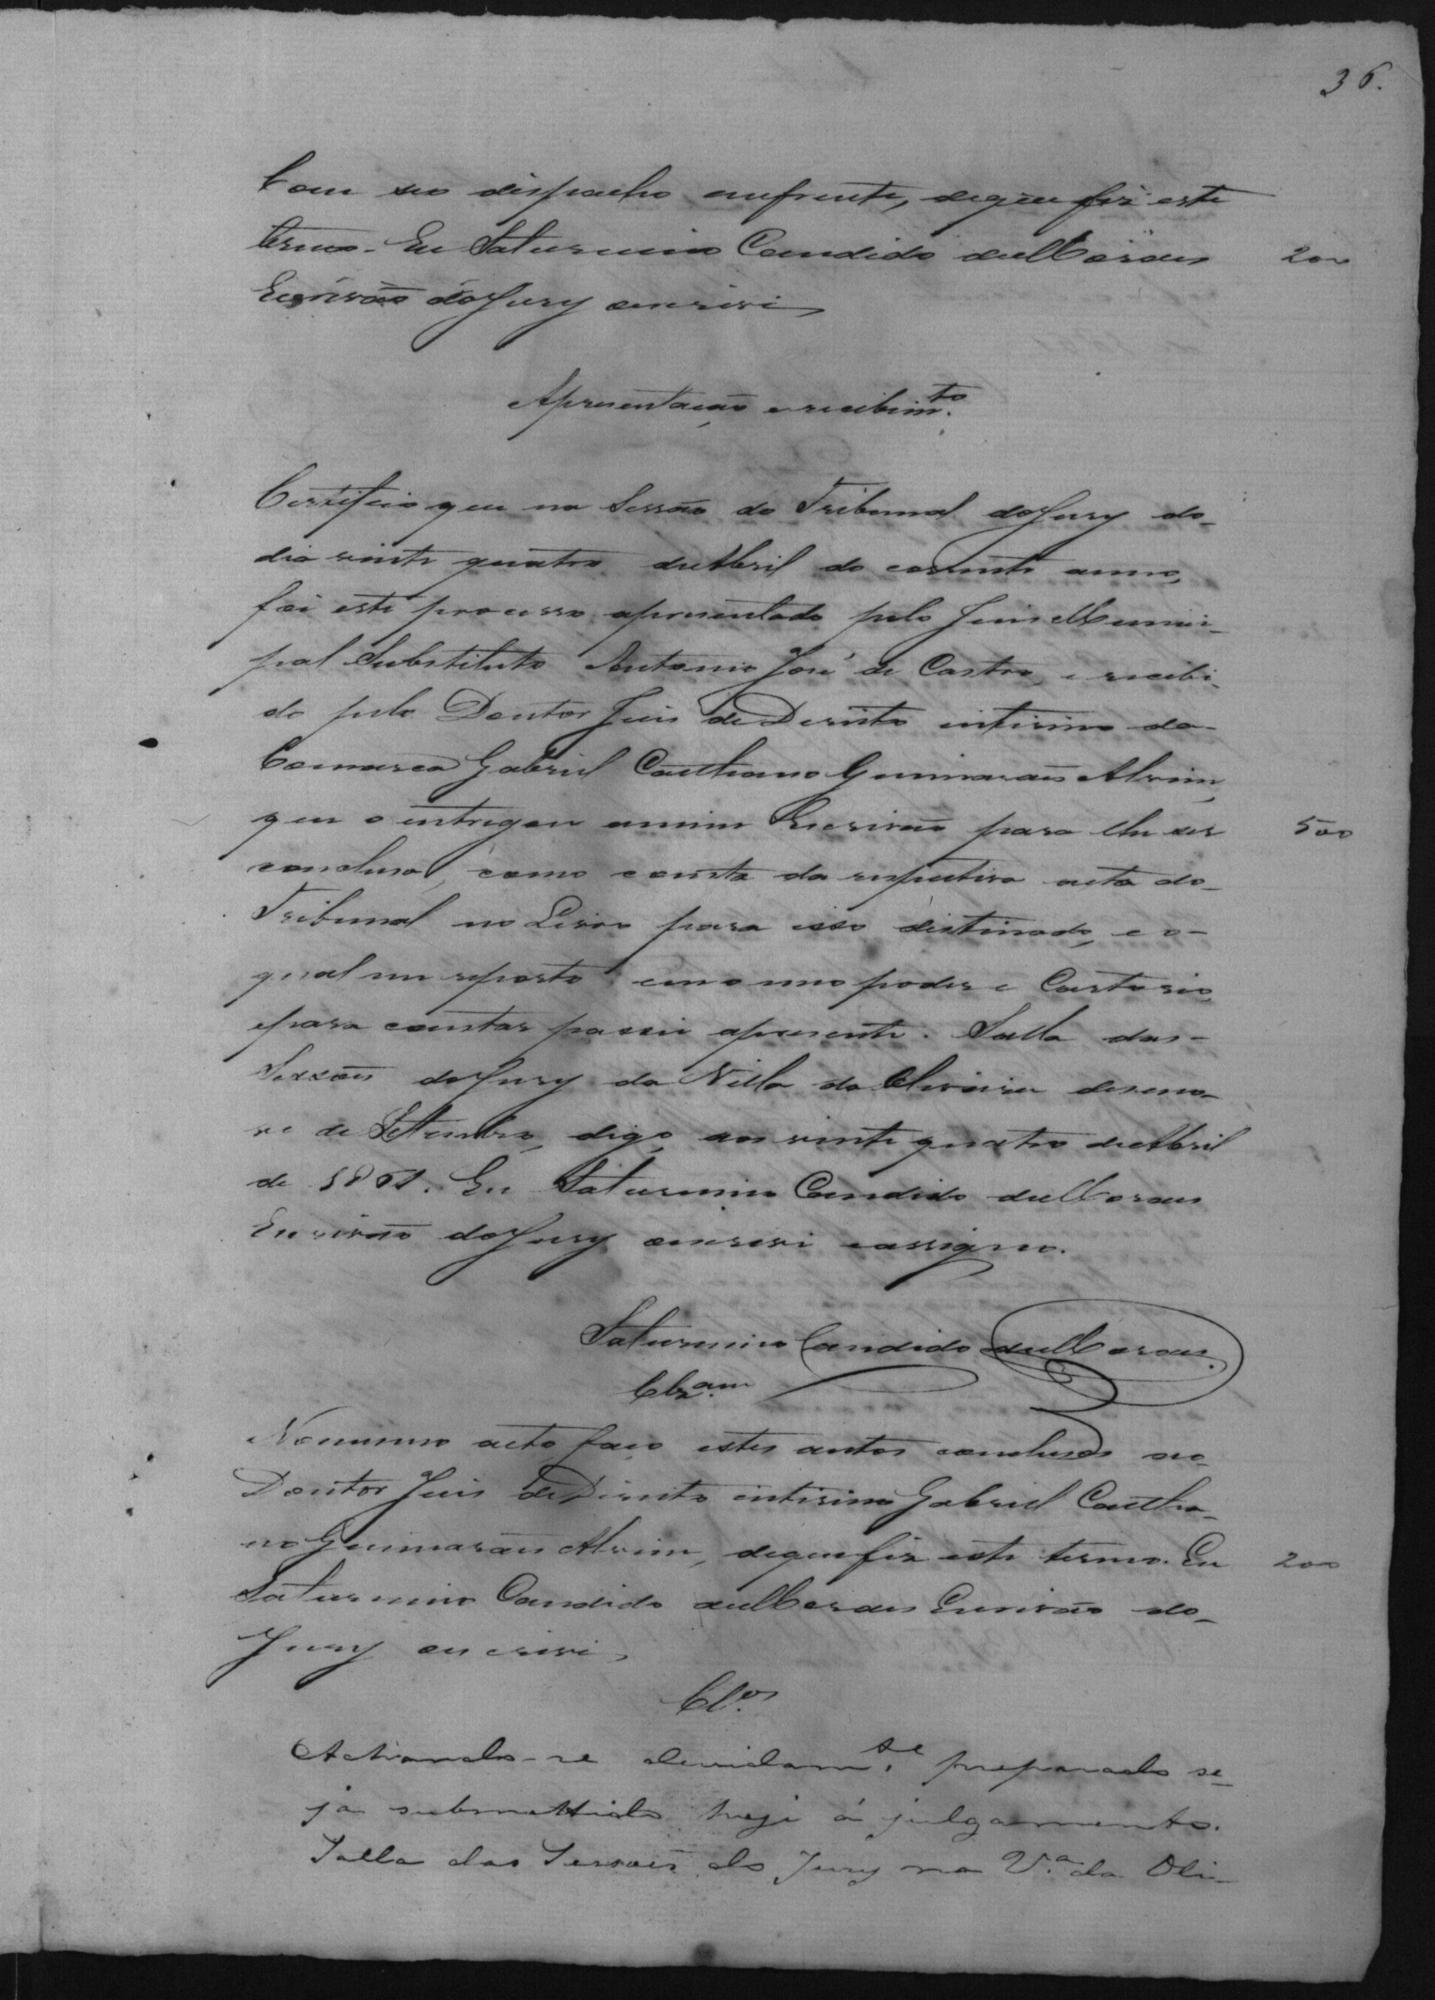 36.
Com seo dispacho emfrente, dequefiz este
termo. Eu Saturnino Candido deMoraes 200
Escrivão doJury oescrivi
Apresentação erecibimto.
Certifico que na Sessão do Tribunal doJury do
dia vinte quatro deAbril do corrente anno,
foi este processo apresentado pelo Juis Munici-
pal Substituto Antonio José de Castro, e recibi-
do pelo Doutor Juis deDireito interino da
Comarca Gabriel Caethano Guimarães Alvim,
que o entregou amim Escrivão para lhe ser 500
concluso, como consta da respectiva acta do
Tribunal no Livro para isso distinado, e o
qual me reporto em o meo poder e Cartorio,
epara constar passei apresente. Salla das
Sessões doJury da Villa da Oliveira deseno-
ve de Setembro, digo, aos vinte quatro deAbril
de 1861. Eu Saturnino Candido deMoraes
Escrivão doJury oescrivi eassigno.
Saturnino Candido deMoraes.
Clzam.
Nomesmo acto faço estes autos conclusos ao
Doutor Juis deDireito interino Gabriel Caetha-
no Guimarães Alvim, dequefiz este termo. Eu 200
Saturnino Candido deMoraes Escrivão do
Jury oescrivi
Clos.
Achando-se devidamte. preparado se-
ja submettido hoje á julgamento.
Salla das Sessões do Jury na Va. da Oli-